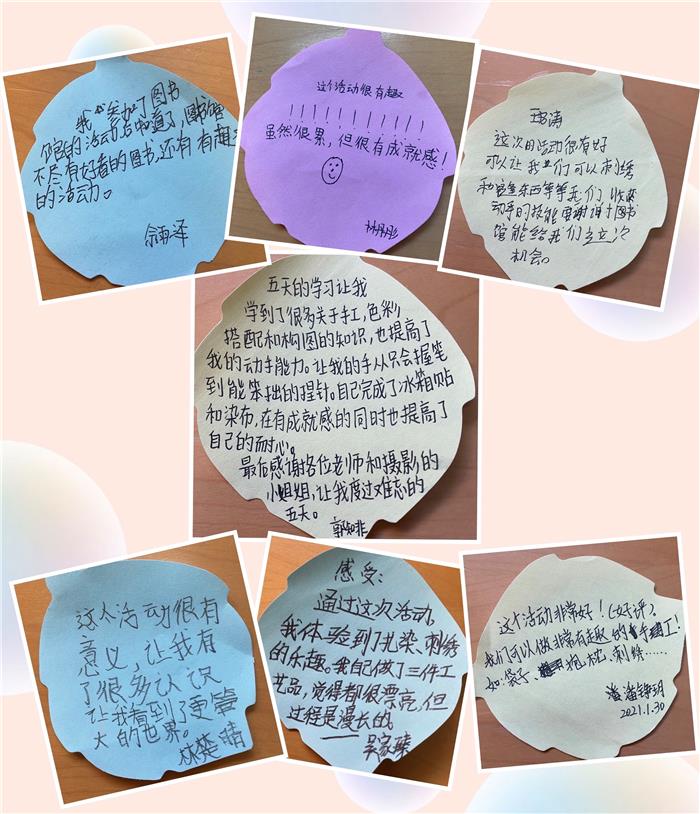 我参加了图书
馆的活动后知道了,图书馆
不尽有好看的图书,还有有趣
的活动。
余雨泽
这个活动很有趣
!!!!!!!!!!
虽然很累,但很有成就感!
林丹彤
这次日活动很有好
可以让我们可以刺绣
动手的技能
谢谢图书
馆能给我们
机会。
五天的学习让我
学到了很多关于手工,色彩,
搭配和构图的知识,也提高了
我的动手能力。让我的手从只会握笔
到能笨拙的捏针。自己完成了冰箱贴
和染布,在有成就感的同时也提高了
自己的耐心。
最后感谢各位老师和摄影的
小姐姐,让我度过难忘的
五天。
郭知非
这个活动很有
意义,让我有
了很多认识
让我看到了更
大的世界。
林楚晴
感受:
通过这次活动,
我体验到了扎染、刺绣
的乐趣。我自己做了三件工
艺品,觉得都很漂亮,但
过程是漫长的。
吴家臻
这个活动非常好!(好评)
我们可以做非常有趣的手工!
如:袋子、抱枕,刺绣……
2021.1.30